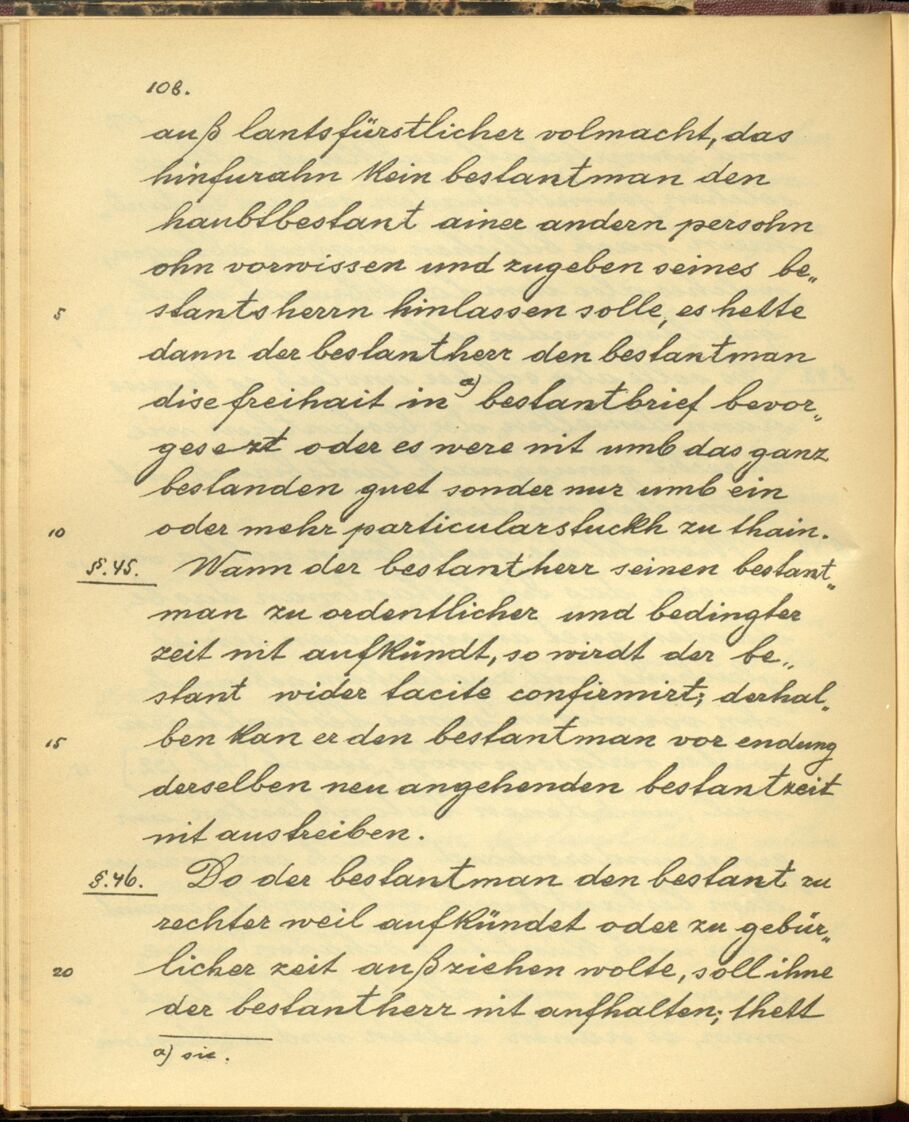 108.
auß lantsfürstlicher volmacht, das
hinfurahn kein bestantman den
haubtbestant ainer andern persohn
ohn vorwissen und zugeben seines be„
5 stantsherrn hinlassen solle, es hette
dann der bestantherr den bestantman
dise freihait in a) bestantbrief bevor„
gesezt oder es were nit umb das ganz
bestanden guet sonder nur umb ein
10 oder mehr particularstuckh zu thain.
§.45. Wann der bestantherr seinen bestant„
man zu ordentlicher und bedingter
zeit nit aufkündt, so wirdt der be„
stant wider tacite confirmirt; derhal„
15 ben kan er den bestantman vor endung
derselben neu angehenden bestantzeit
nit austreiben.
§.46. Do der bestantman den bestant zu
rechter weil aufkündet oder zu gebür„
20 licher zeit außziehen wolte, soll ihne
der bestantherr nit aufhalten; thett
a) sic.